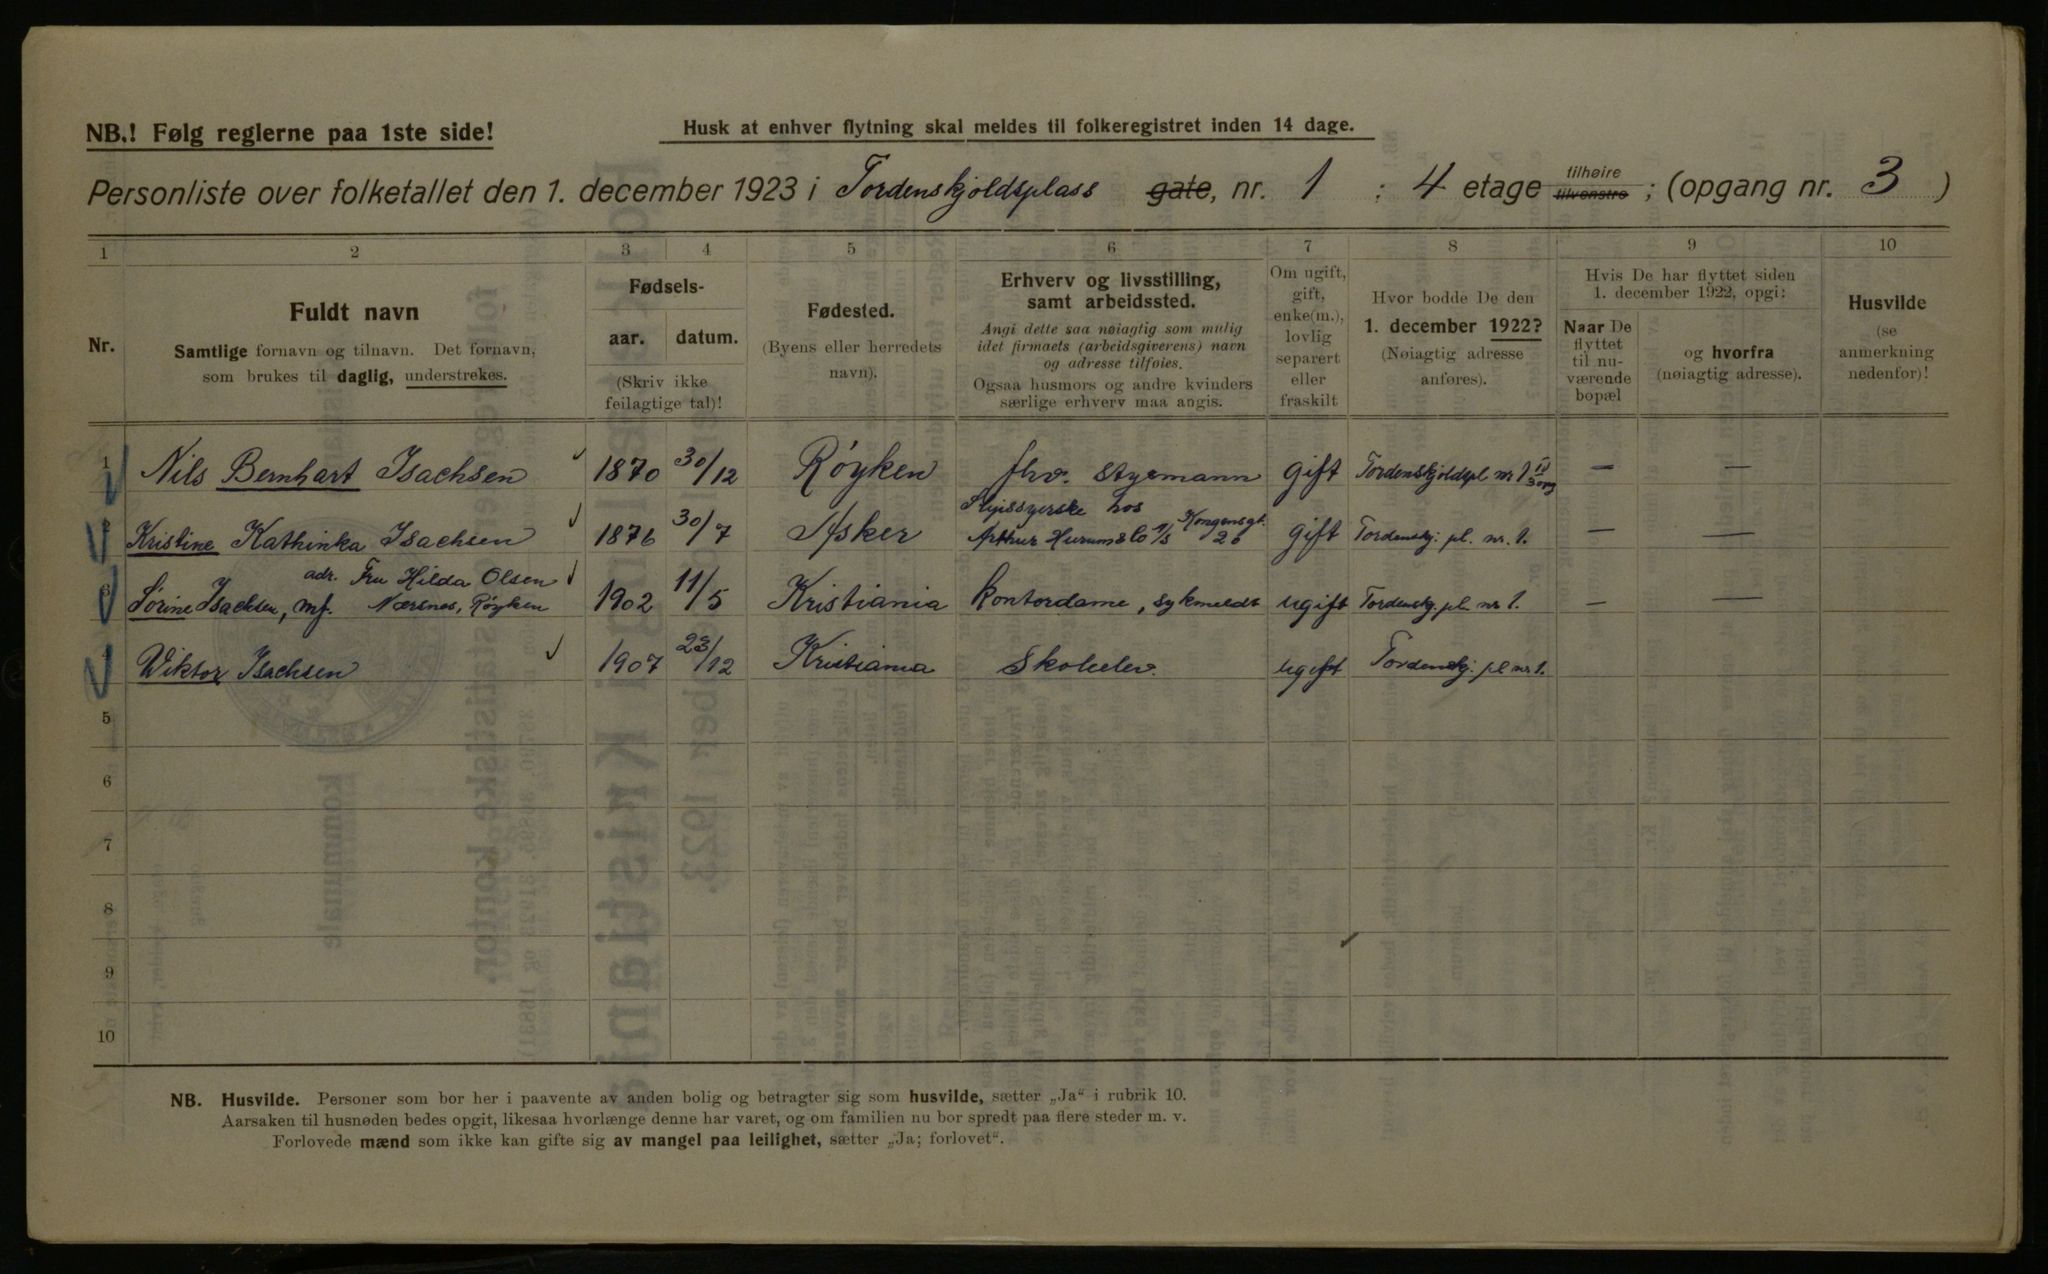 NB.! Følg reglerne paa 1ste side!
Husk at enhver flytning skal meldes til folkeregistret inden 14 dage.
Personliste over folketallet den 1. december 1923 i Tordenskjoldsplass gate, nr. 1 : 4 etage tilhøire tilvenstre ; (opgang nr. 3 )
1 2 3 4 5 6 7 8 9 10
Nr.
Fuldt navn
Samtlige fornavn og tilnavn. Det fornavn,
som brukes til daglig, understrekes.
Fødsels-
aar. datum.
(Skriv ikke
feilagtige tal)!
Fødested.
(Byens eller herredets
navn).
Erhverv og livsstilling,
samt arbeidssted.
Angi dette saa nøiagtig som mulig
idet firmaets (arbeidsgiverens) navn
og adresse tilføies.
Ogsaa husmors og andre kvinders
særlige erhverv maa angis.
Om ugift,
gift,
enke(m.),
lovlig
separert
eller
fraskilt
Hvor bodde De den
1. december 1922?
(Nøiagtig adresse
anføres).
Hvis De har flyttet siden
1. december 1922, opgi:
Naar De
flyttet
til nu-
værende
bopæl
og hvorfra
(nøiagtig adresse).
Husvilde
(se
anmerkning
nedenfor)!
1 Nils Bernhart Isachsen 1870 30/12 Røyken fhv. styrmann gift Tordenskjoldspl nr 1 — —
2 Kristine Kathinka Isachsen 1876 30/7 Asker hos Arthur Hurum & Co A/S Kongensgt. 26 gift Tordenskj. pl. nr. 1. — —
adr. Fru Hilda Olsen
3 Sörine Isachsen, mf. Nærsnes, Røyken 1902 11/5 Kristiania kontordame, sykmeldt ugift Tordenskj. pl. nr 1. — —
4 Wiktor Isachsen 1907 23/12 Kristiania Skoleelev. ugift Tordenskj. pl nr. 1.
5
6
7
8
9
10
NB. Husvilde. Personer som bor her i paavente av anden bolig og betragter sig som husvilde, sætter „Ja“ i rubrik 10.
Aarsaken til husnøden bedes opgit, likesaa hvorlænge denne har varet, og om familien nu bor spredt paa flere steder m. v.
Forlovede mænd som ikke kan gifte sig av mangel paa leilighet, sætter „Ja; forlovet“.